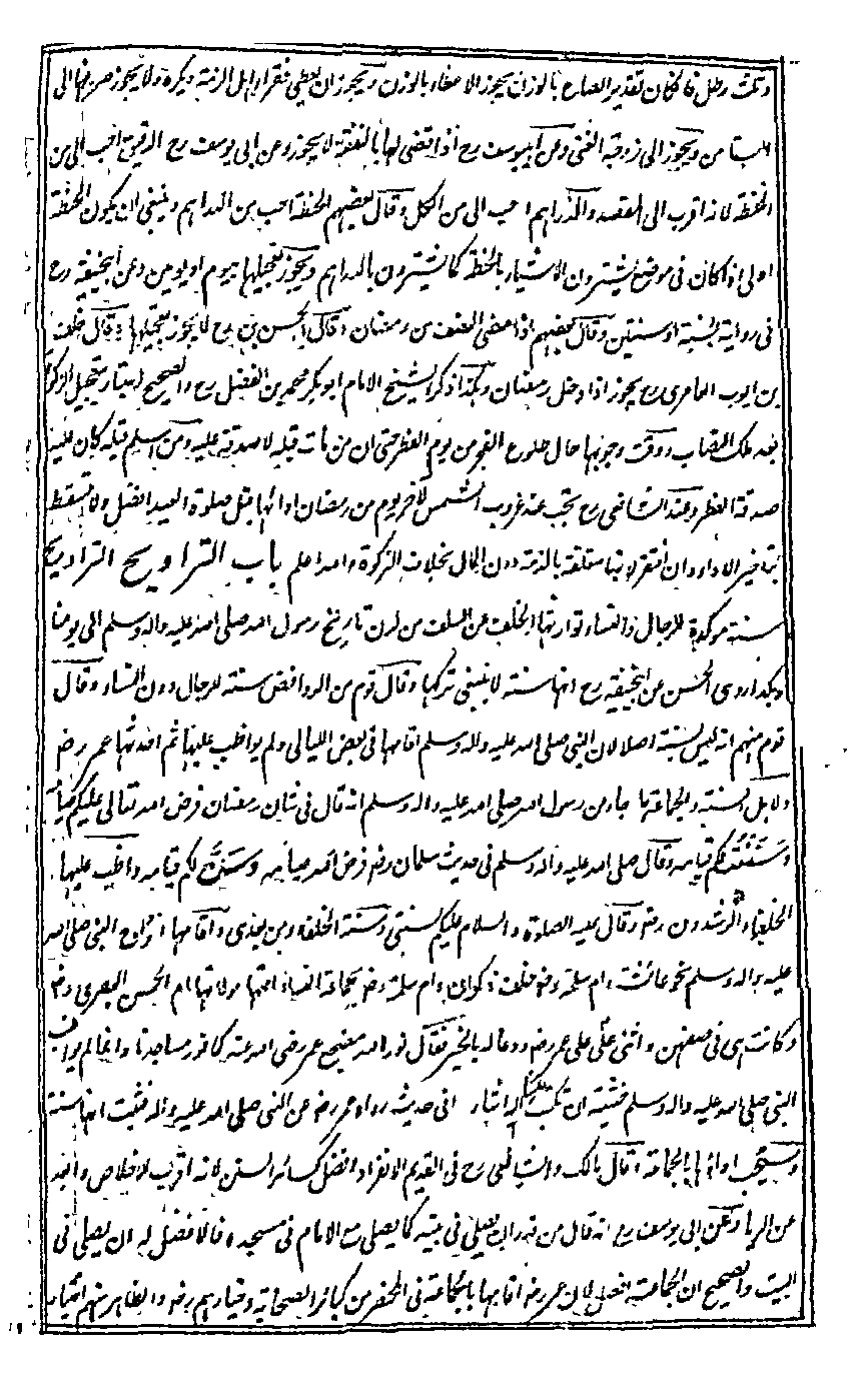 وثلث رطل فا كان تقدير الصاع بالوزن يجوز الاعطاء بالوزن ويجوز ان يعطي فقراء اهل الذمة ويكره ولا يجوز صرفها الى
المستامن ويجوز الى زوجة الغني وعن ابيوسف رح اذا قضى لها بالنفقة لا يجوز وعن ابى يوسف رح الدقيق احب الى من
الحنطة لانه اقرب الى المقصد والدراهم احب الى من الكل وقال بعضهم الحنطة احب من الدراهم وينبغي ان يكون الحنطة
اولى اذا كان في موضع يشترون الاشياء بالحنطة كما يشترون بالدراهم ويجوز تعجيلها بيوم او يومين وعن ابيحنيفة رح
في رواية بسنة او سنتين وقال بعضهم اذا مضى النصف من رمضان وقال الحسن بن رح لا يجوز تعجيلها وقال خلف
بن ايوب العامرى رح يجوز اذا دخل رمضان وهكذا ذكر الشيخ الامام ابوبكر محمد بن الفضل رح والصحيح تعجيل الزكوة
بعد ملك النصاب ووقت وجوبها حال طلوع الفجر من يوم الفطر حتى ان من مات قبله لا صدقة عليه ومن اسلم قبله كان عليه
صدقة الفطر وعند الشافعى رح تجب عند غروب الشمس لآخر يوم من رمضان ادائها قبل صلوة العيد افضل ولا تسقط
بتاخير الاداء وان افتقر لانها متعلقة بالذمة دون المال بخلاف الزكوة والله اعلم باب التراويح التراويح
سنة موكدة للرجال والنساء توارثها الخلف عن السلف من لدن تاريخ رسول الله صلى الله عليه واله وسلم الى يومنا
وهكذا روى الحسن عن ابيحنيفة رح انها سنة لا ينبغي تركها وقال قوم من الروافض سنة للرجال دون النساء وقال
قوم منهم انه ليس بسنة اصلا لان النبي صلى الله عليه واله وسلم اقامها في بعض الليالي ولم يواظب عليها ثم احدثها عمر رضه
ولاهل السنة والجماعة ما جاء من رسول الله صلى الله عليه واله وسلم انه قال في شان رمضان فرض الله تعالى عليكم صيامه
وسننت لكم قيامه وقال صلى الله عليه واله وسلم في حديث سلمان رضه فرض الله صيامه وسن لكم قيامه واظب عليها
الخلفاء الراشدون رضه وقال عليه الصلوة والسلام عليكم بسنتي وسنة الخلفاء من بعدى واقامها ازواج النبي صلى الله
عليه واله وسلم نحو عائشة وام سلمة رضه خلف ذكوان وام سلمة رضه بجماعة النساء امتها مولاتها ام الحسن البصرى رضه
وكانت هى في صفهن واثنى علي على عمر رضه ودعا له بالخير فقال نور الله مضجع عمر رضى الله عنه كما نور مساجدنا وانما لم يواظب
النبي صلى الله عليه واله وسلم خشية ان تكتب علينا في حديث رواه عمر رضه عن النبي صلى الله عليه واله فثبت انها سنة
ويستحب اداؤها بالجماعة وقال مالك والشافعى رح في القديم الانفراد افضل كسائر السنن لانه اقرب للاخلاص وابعد
عن الريا وعن ابى يوسف رح انه قال من قدر ان يصلى في بيته كما يصلى مع الامام في مسجده فالافضل له ان يصلى في
البيت والصحيح ان الجماعة افضل لان عمر رضه اقامها بالجماعة في المحضر من كبائر الصحابة وخيارهم رضه والظاهر منهم اختيار